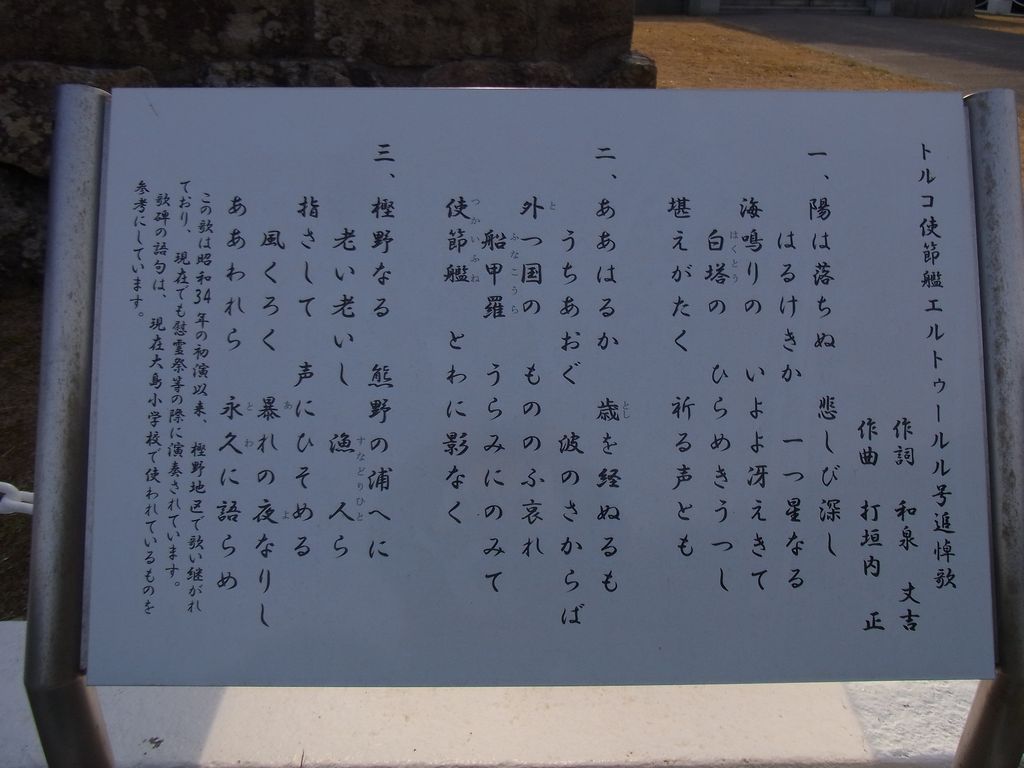 トルコ使節艦エルトゥールル号追悼歌
作詞 和泉 丈吉
作曲 打垣内 正
一、陽は落ちぬ 悲しび深し
はるけきか 一つ星なる
海鳴りの いよよ冴えきて
白塔の ひらめきうつし
はくとう
堪えがたく 祈る声とも
二、ああはるか 歳を経ぬるも
とし
うちあおぐ 波のさからば
外つ国の もののふ哀れ
と
船甲羅 うらみにのみて
ふなこうら
使節艦 とわに影なく
つかいふね
三、樫野なる 熊野の浦へに
老い老いし 漁人ら
すなどりひと
指さして 声にひそめる
風くろく 暴れの夜なりし
あ よ
ああわれら 永久に語らめ
とわ
この歌は昭和34年の初演以来、樫野地区で歌い継がれ
ており、現在でも慰霊祭等の際に演奏されています。
歌碑の語句は、現在大島小学校で使われているものを
参考にしています。